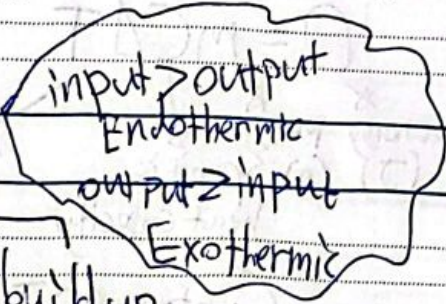 input > output
Endothermic
output > input
Exothermic
build up